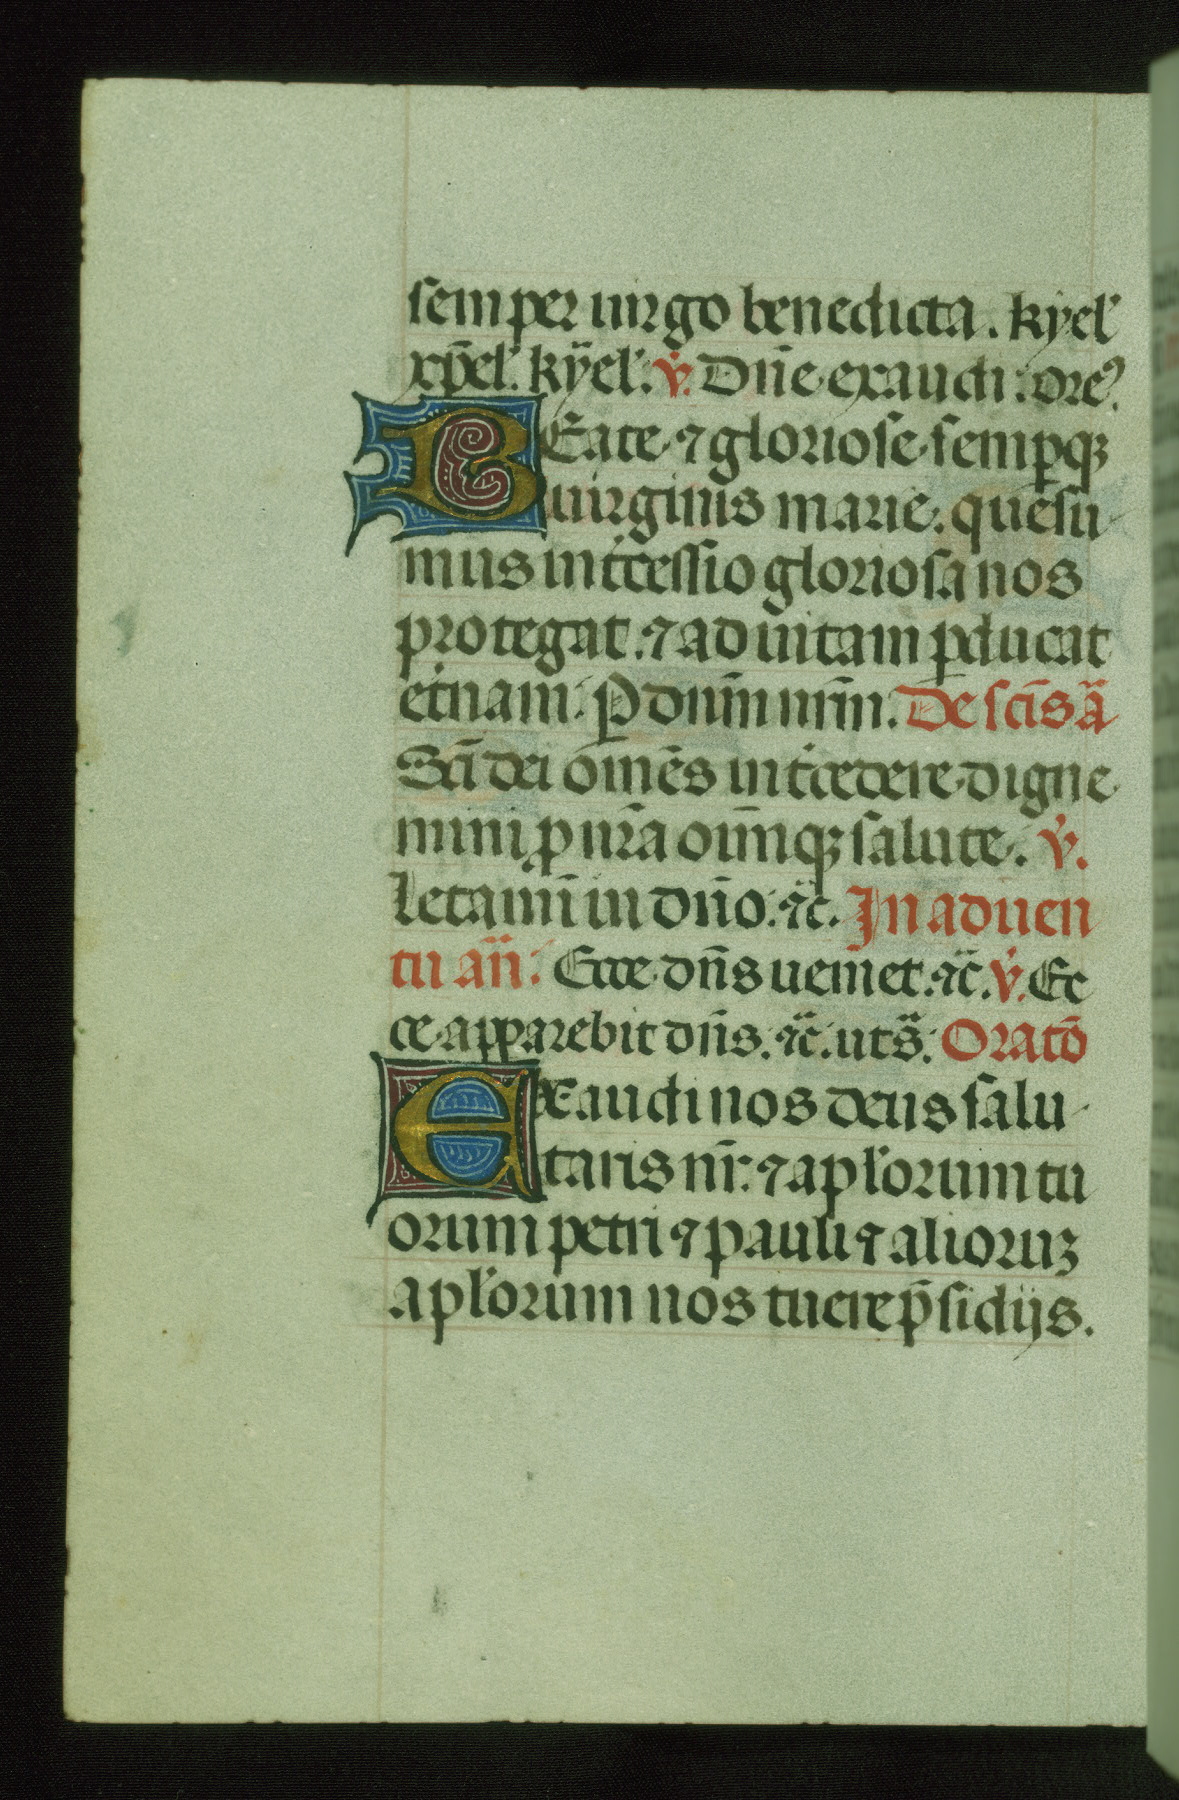 semper uirgo benedicta. kyel'
xp̄el'. kyel'. v̇. Dn̄e exaudi: ore?
BEate ⁊ gloriose semꝑqꝫ
uirginis marie. quesu
mus int̄cessio gloriosa nos
protegat. ⁊ ad uitam ꝑducat
et̄nam. P̲ dnm̄ nr̄m. De sc̄is ā
Sc̄i dei om̄es int̄cedere digne
mini ꝓ nr̄a oīmqꝫ salute. v̇.
Letamı̄ in dn̄o. ⁊c̄. In aduen
tu an̄. Ecce dn̄s ueniet. ⁊c̄. v̇. Ec
ce apparebit dn̄s. ⁊c̄. ut s̄. Oratō
Exaudi nos deus salu
taris nr̄. ⁊ apl'orum tu
orum petri ⁊ pauli ⁊ alioruꝫ
apl'orum nos tuere p̄sidijs.